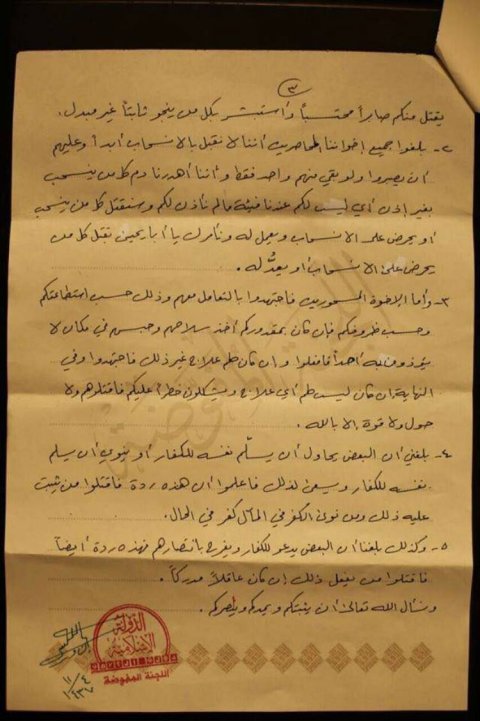 ٣
يقتل منكم صابراً محتسباً وأستبشر بكل من ينجو ثابتاً غير مبدل.
٢- بلغوا جميع إخواننا المحاصرين أننا لا نقبل بالانسحاب أبداً وعليهم
أن يصبروا ولو بقي منهم واحد فقط وأننا أهدرنا دم كل من ينسحب
بغير إذن أي ليس لكم عندنا فيئة مالم نأذن لكم وسنقتل كل من ينسحب
أو يحرض على الانسحاب ويعمل له ونأمرك يا أبا يحيى بقتل كل من
يحرض على الانسحاب أو يعد له.
٣- وأما الإخوة المسحورين فاجتهدوا بالتعامل معهم وذلك حسب استطاعتكم
وحسب ظروفكم فإن كان بمقدوركم أخذ سلاحهم وحبسهم في مكان لا
يؤذون فيه أحداً فافعلوا وإن كان لهم علاج غير ذلك فاجتهدوا وفي
النهاية إن كان ليس لهم أي علاج ويشكلون خطراً عليكم فاقتلوهم ولا
حول ولا قوة إلا بالله.
٤- بلغني أن البعض يحاول أن يسلّم نفسه للكفار أو ينوي أن يسلم
نفسه للكفار ويسعى لذلك فاعلموا أن هذه ردة فاقتلوا من يثبت
عليه ذلك ومن نوى الكفر في المآل كفر في الحال.
٥- وكذلك بلغنا أن البعض يدعو للكفار ويفرح بانتصارهم فهذه ردة أيضاً
فاقتلوا من يفعل ذلك إن كان عاقلاً مدركاً.
ونسأل الله تعالى أن يثبتكم ويمدكم وينصركم.
الدولة
الإسلامية
اللجنة المفوضة